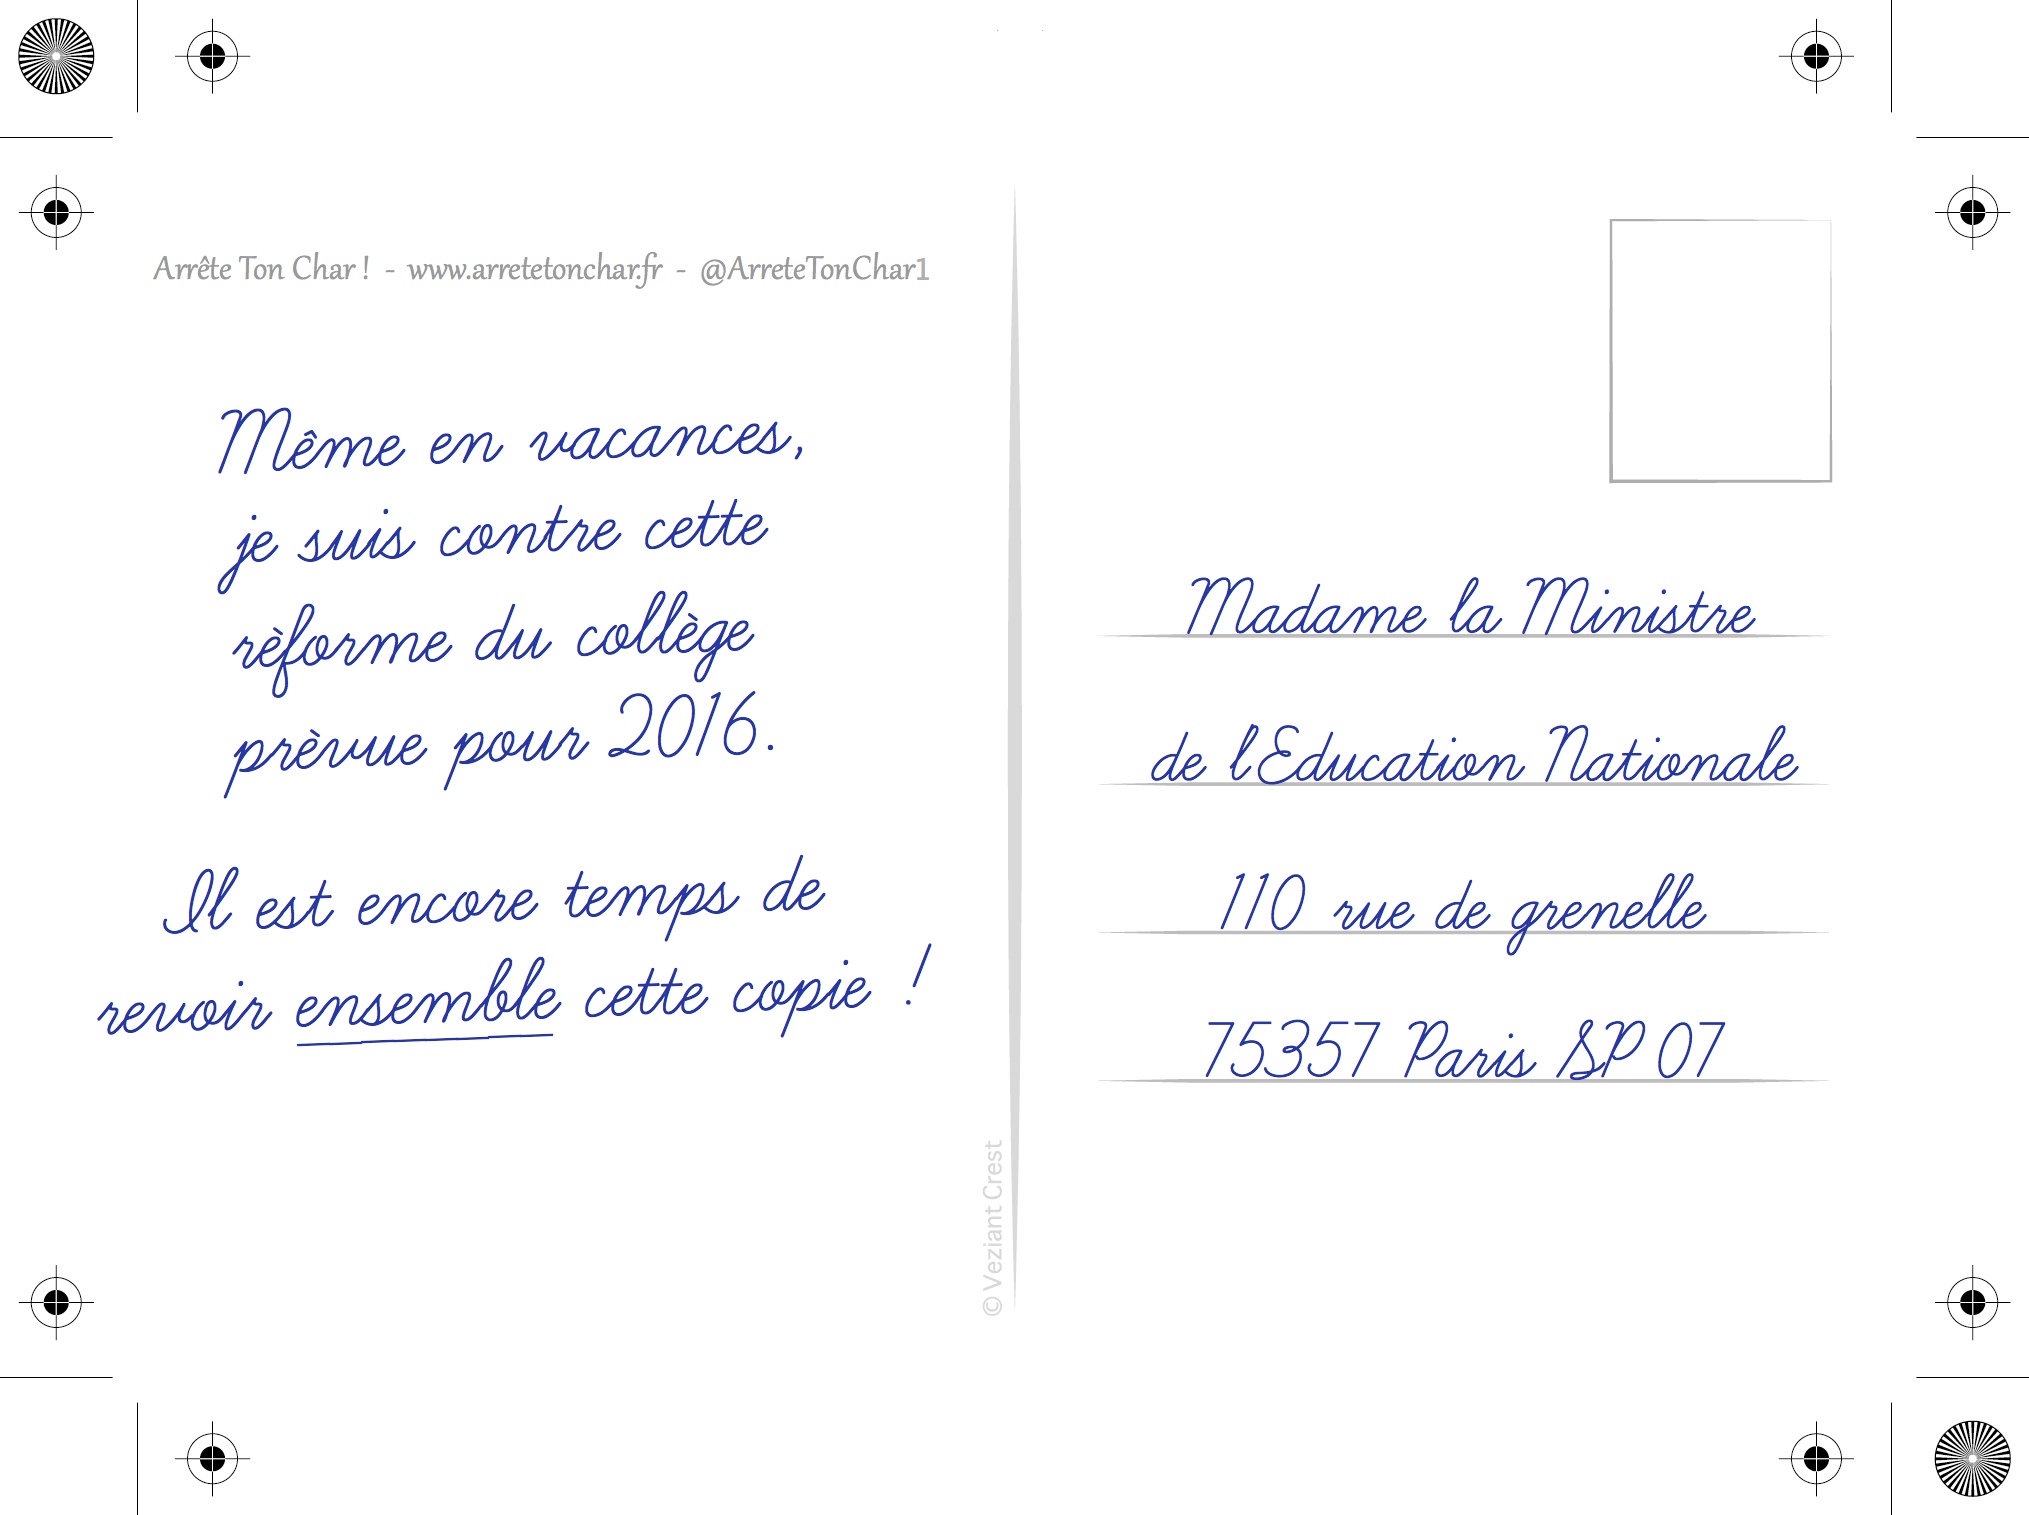 Arrête Ton Char ! - www.arretetonchar.fr - @ArreteTonChar1
Même en vacances,
je suis contre cette
rèforme du collège
prèvue pour 2016.
Il est encore temps de
revoir ensemble cette copie !
© Veziant Crest
Madame la Ministre
de l'Education Nationale
110 rue de grenelle
75357 Paris SP 07